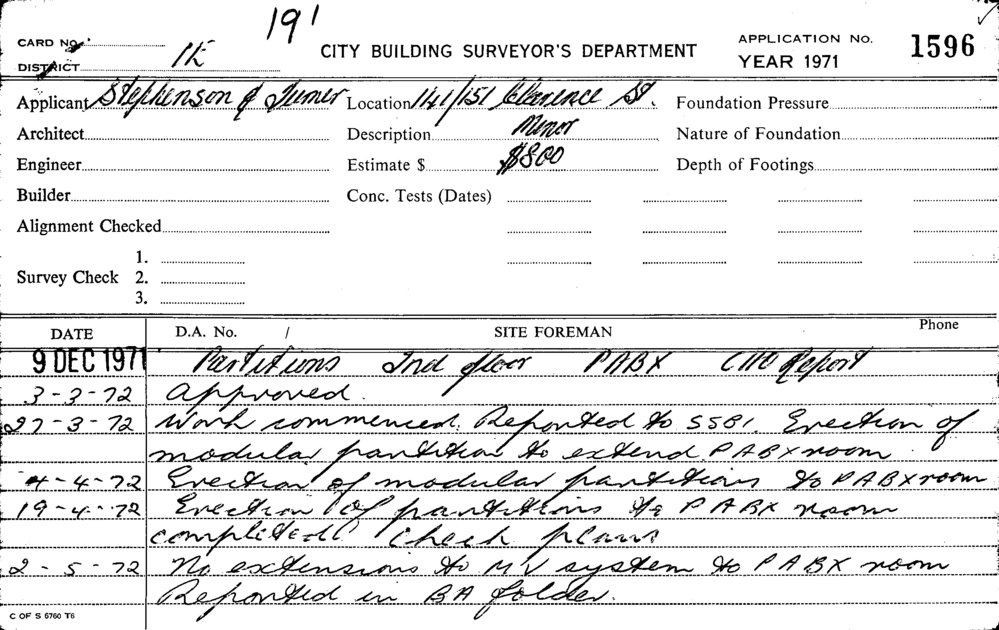 191
CARD No.
DISTRICT
CITY BUILDING SURVEYOR'S DEPARTMENT
APPLICATION No. 1596
YEAR 1971
Applicant Stephenson & Turner Location 141/151 Clarence St. Foundation Pressure
Architect Description Minor Nature of Foundation
Engineer Estimate $ $800 Depth of Footings
Builder Conc. Tests (Dates)
Alignment Checked
1.
Survey Check 2.
3.
DATE D.A. No. / SITE FOREMAN Phone
9 DEC 1971 Partitions 2nd floor PABX Report
3-3-72 Approved.
27-3-72 Work commenced. Reported to SSBI. Erection of
modular partition to extend PABX room.
4-4-72 Erection of modular partitions to PABX room
19-4-72 Erection of partitions to PABX room
completed check plans
2-5-72 No extensions to MV system to PABX room
Reported in BA folder.
C OF S 6760 T6